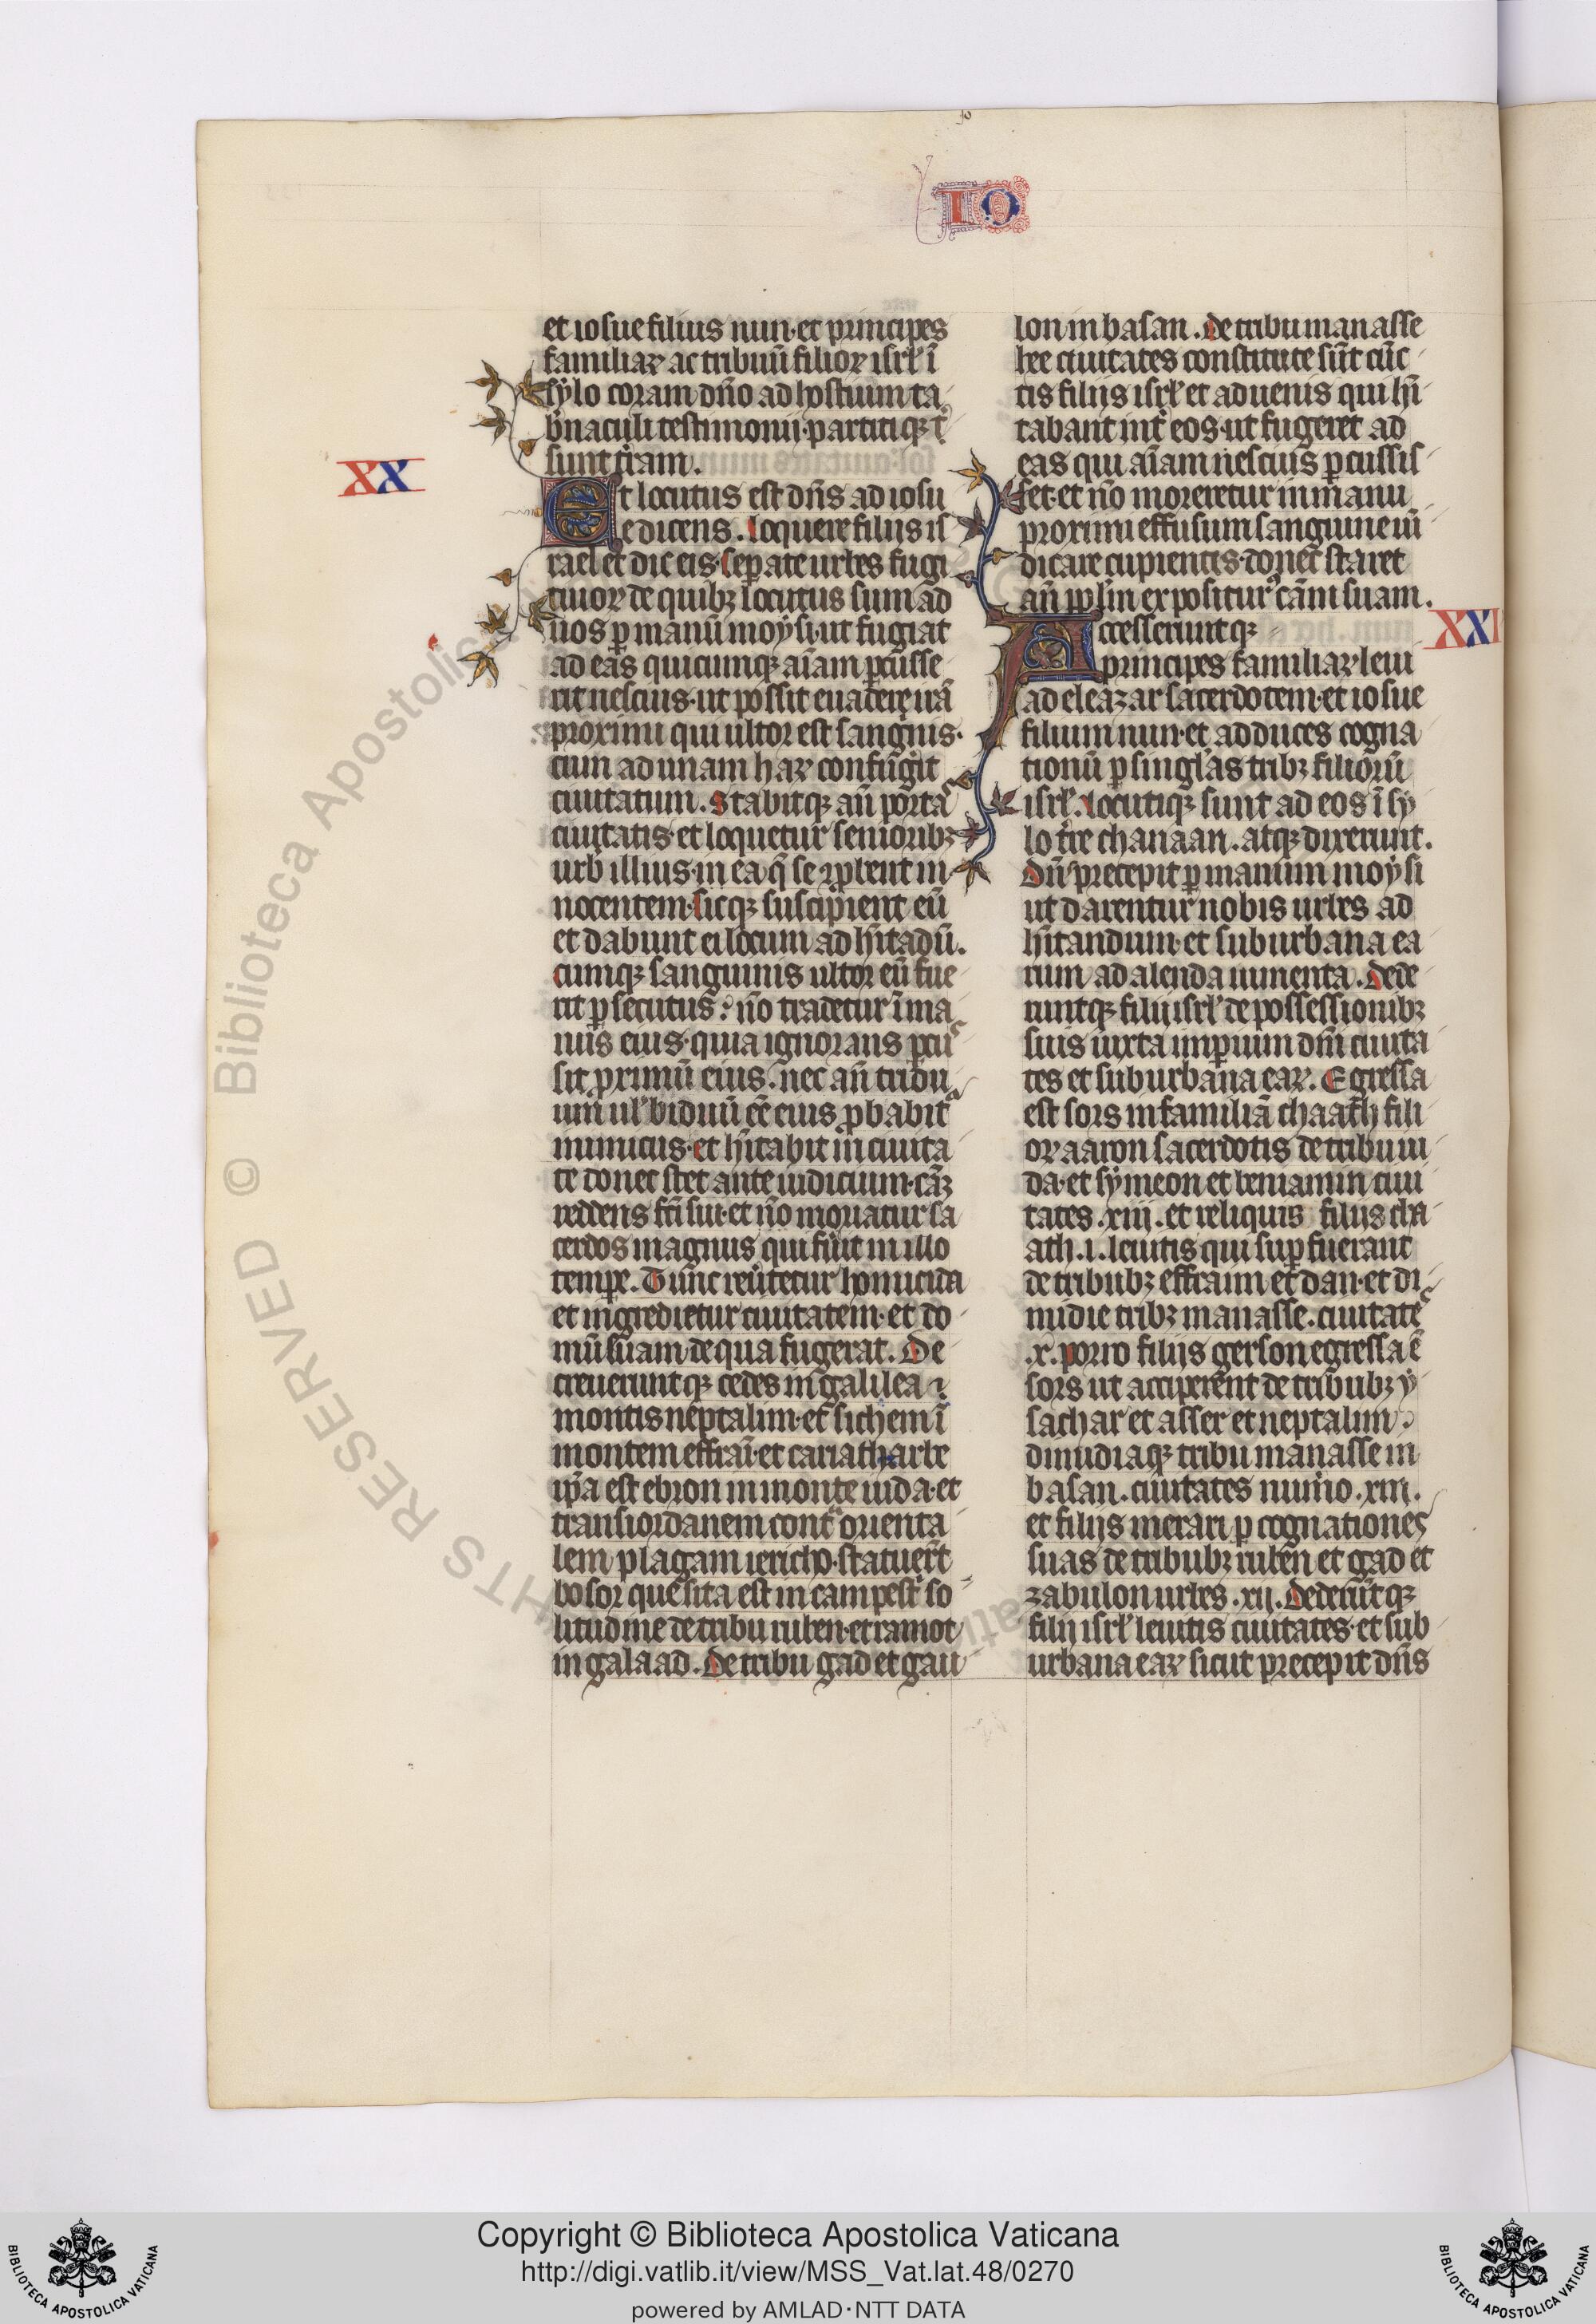 IO
et iosue filius nun· et principes
familiaꝝ ac tribuū filioꝝ isrł ī
sẏlo coram dño ad hostium ta
b̾naculi testimonii· partitiqꝫ
sunt t̾ram.
XX
Et locutus est dñs ad iosu
e dicens. loquere filijs is
rael et dic eis· sepate urbes fugi
tiuoꝝ de quibꝫ locutus sum ad
uos ꝑ manū moẏsi· ut fugiat
ad eas quicumqꝫ aīam ꝑcusse
rit nescius· ut possit euadere irā
proximi qui ultor est sanguis·
cum ad unam haꝝ confug̾it
ciuitatum. Stabitqꝫ añ portā
ciuitatis· et loquetur senioribꝫ
urb̾ illius· in ea q̄ se ꝯp̄bent in
nocentem· sicqꝫ suscipient eū
et dabunt ei locum ad hītādū.
cumqꝫ sanguinis ultor eū fue
rit ꝑsecutus: ño tradetur ī ma
nus eius· quia ignorans ꝑcus
sit ꝓximū eius. nec añ tridu
um uł biduū eē eius ꝓbabit᷑
inimicus· et hītabit in ciuita
te donec stet ante iudicium· cāꝫ
reddens fc̄i sui· et ño moriatur sa
cerdos magnus qui fu̾it in illo
temꝑe. Tunc reu̾tetur homicida
et ingredietur ciuitatem· et do
mū suam de qua fugerat. De
creueruntqꝫ cedes in galilea ⁊
montis neptalim· et sichem ī
montem effraī· et cariatharbe
ip̄a est ebron in monte iuda· et
transiordanem contᵃ orienta
lem plagam iericho· statuer̄t
bosor que sita est in campest̾ so
litudine de tribu ruben· et ramot
in galaad. De tribu gad et gau
lon in basan. de tribu manasse
hee ciuitates constitute sūt cūc
tis filijs isrł et aduenis qui hī
tabant int̾ eos· ut fugeret ad
eas qui aīam nescius ꝑcussis
set· et ño moreretur in manu
proximi effusum sanguinem uī
dicare cupientis· donec staret
añ pp̄lm expositur᷒ cām suam.
XXI
Accesseruntqꝫ
principes familiaꝝ leui
ad eleazar sacerdotem· et iosue
filium nun· et ad duces cogna
tionū ꝑ singłas tribꝫ filiorū
isrł. Locutiqꝫ sunt ad eos ī sẏ
lo t̾re chanaan. atqꝫ dixerunt.
Dñs precepit ꝑ manum moẏsi
ut darentur nobis urbes ad
hītandum· et suburbana ea
rum ad alenda iumenta. Dede
runtqꝫ filij isrł de possessionibꝫ
suis iuxta imꝑium dñi ciuita
tes et suburbana eaꝝ. Egressa
est sors in familiā chaath fili
oꝝ aaron sacerdotis de tribu iu
da· et sẏmeon et beniamin ciui
tates .xiij. et reliquis filijs cha
ath .i. leuitis qui suꝑfuerant
de tribubꝫ effraim et dan· et di
midie tribꝫ manasse. ciuitates
.x. porro filijs gerson egressa ē
sors ut acciperent de tribubꝫ ẏ
sachar et asser et neptalim.
dimidiaqꝫ tribu manasse in
basan. ciuitates num̾o .xiii.
et filijs merari ꝑ cognationes
suas de tribubꝫ rubēn et gad et
zabulon urbes .xij. Dederūtqꝫ
filij isrł leuitis ciuitates· et sub
urbana eaꝝ sicut precepit dñs
© Biblioteca Apostolica
RESERVED
Copyright © Biblioteca Apostolica Vaticana
http://digi.vatlib.it/view/MSS_Vat.lat.48/0270
powered by AMLAD·NTT DATA
BIBLIOTECA APOSTOLICA VATICANA
BIBLIOTECA APOSTOLICA VATICANA